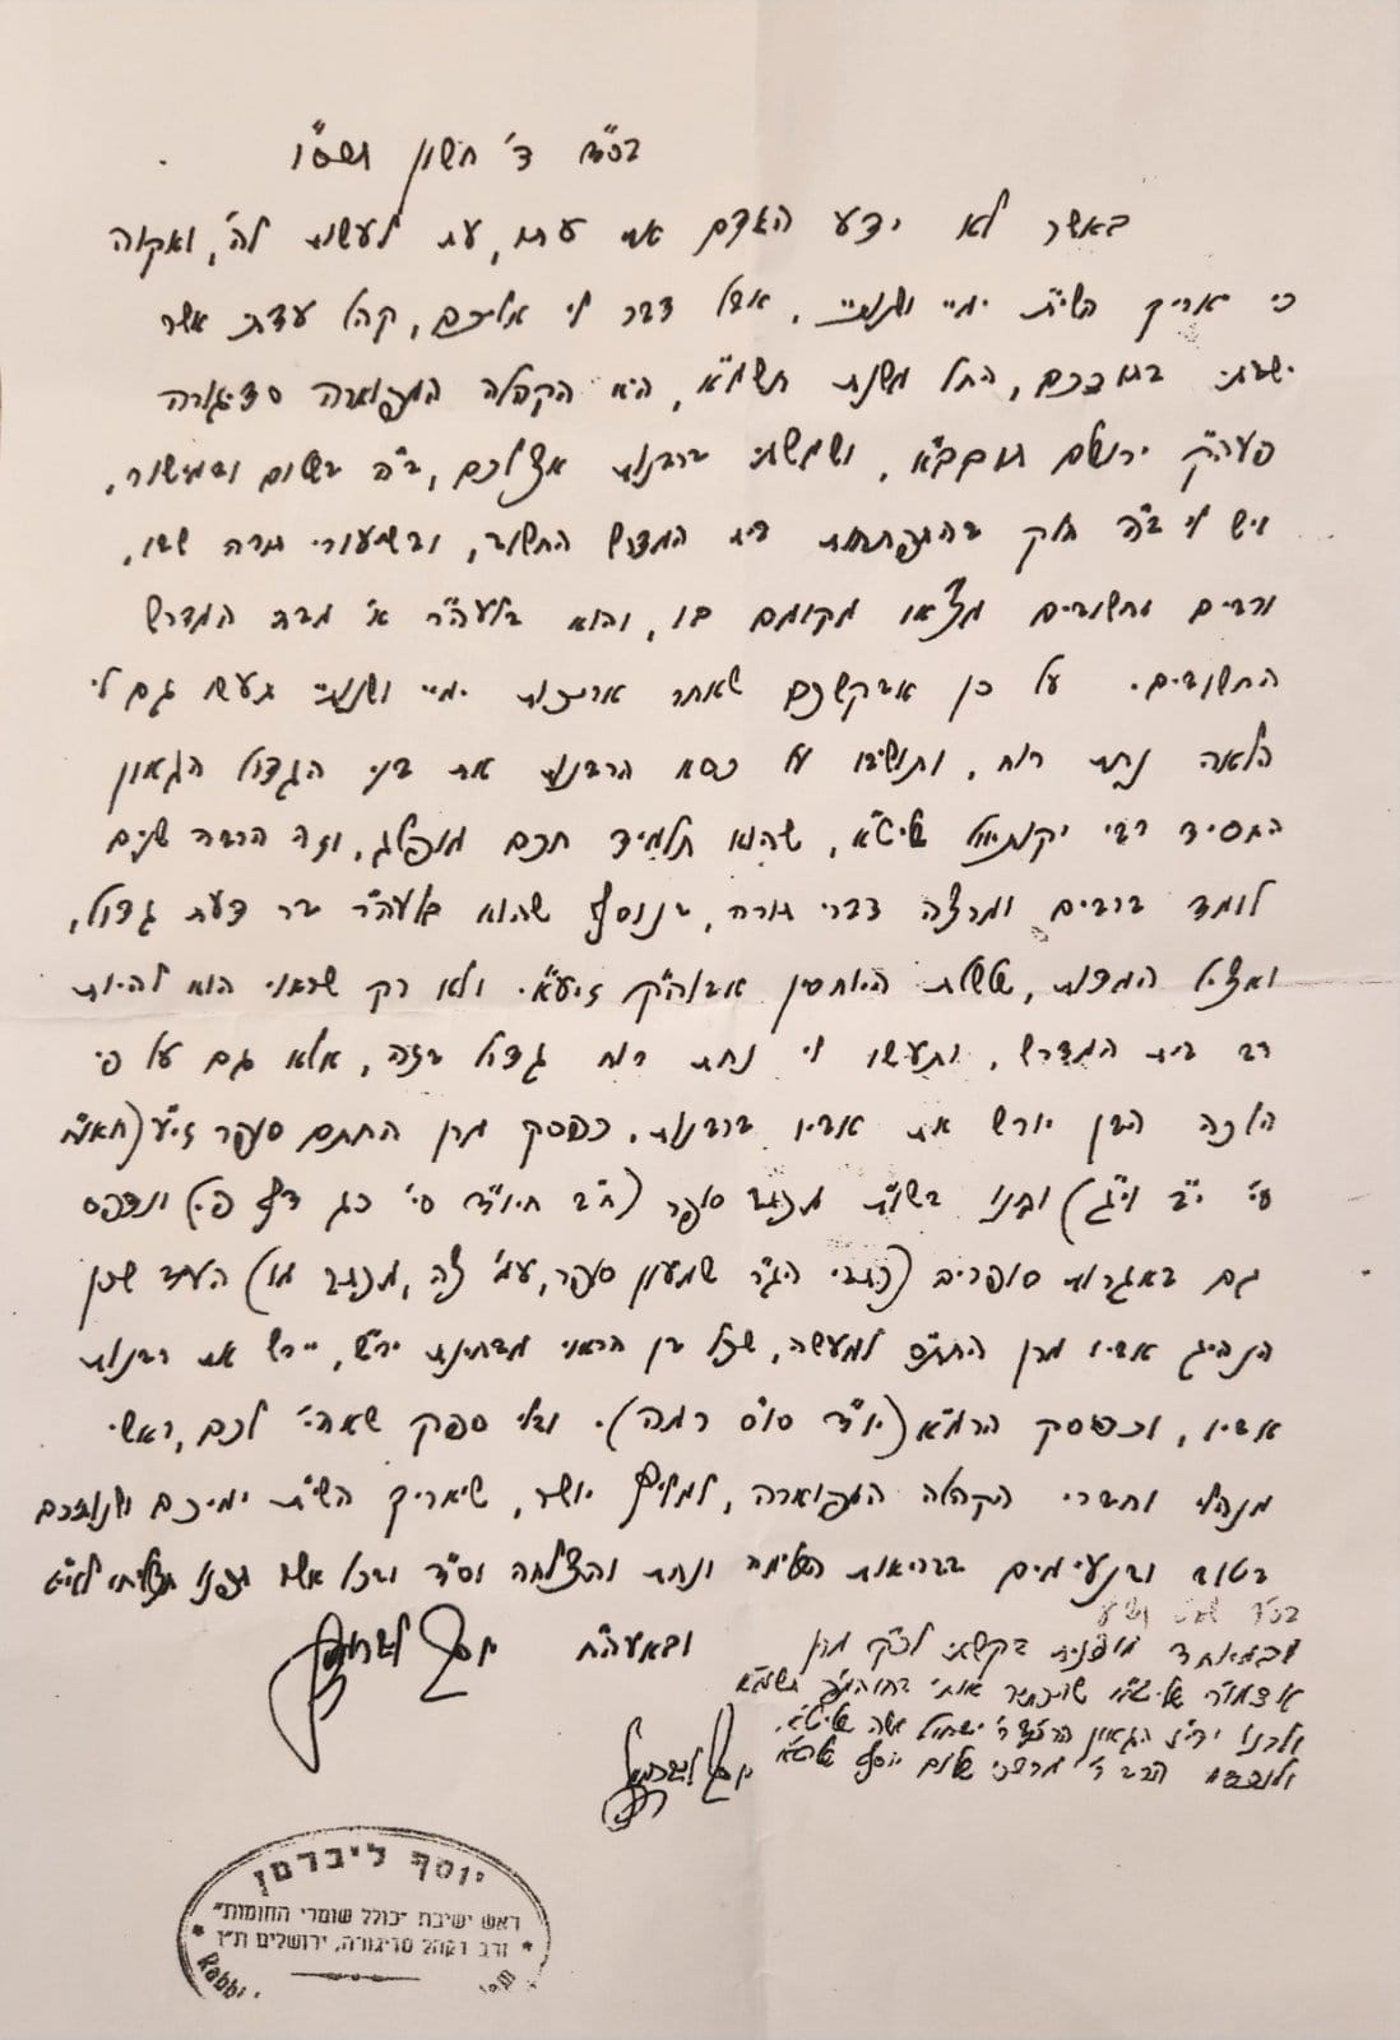 בס"ד ד' חשון תשס"ו
באשר לא ידע האדם את עתו, עת לעשות לה', ואקוה
כי יאריך השי"ת ימיי ושנותיי, אבל דבר לי אליכם, קהל עדת אשר
ישבתי בתוככם, החל משנת תשמ"א, היא הקהלה המפוארה סדיגורה
פעה"ק ירושלם תובב"א, ושמשתי ברבנות אצלכם, ב"ה בשלום ובמישור,
ויש לי ב"ה חלק בהתפתחות בית המדרש החשוב, ובשיעורי תורה שבו,
ורבים וחשובים מצאו מקומם בו, והוא בלעה"ר א' מבתי המדרש
החשובים. על כן אבקשכם שאחר אריכות ימיי ושנותיי תעשו גם לי
הלאה נחת רוח, ותושיבו על כסא הרבנות את בני הגדול הגאון
החסיד רבי יקותיאל שליט"א, שהוא תלמיד חכם מופלג, וזה הרבה שנים
לומד ברבים ומרצה דברי תורה, בנוסף שהוא בלעה"ר בר דעת גדול,
ואציל המדות, שלשלת היוחסין אבוה"ק זיע"א. ולא רק שראוי הוא להיות
רב בית המדרש, ותעשו לי נחת רוח גדול בזה, אלא גם על פי
הלכה הבן יורש את אביו ברבנות, כפסק מרן החתם סופר זי"ע (חאו"ח
סי' י"ב וי"ג) ובנו בשו"ת מכתב סופר (ח"ב חיו"ד סי' כג דף פ.) ונדפס
גם באגרות סופרים (כתבי הג"ר שמעון סופר, עמ' צה, מכתב מו) העיד שכן
הנהיג אביו מרן החת"ס למעשה, שכל בן הראוי מבחינת יר"ש, יירש את רבנות
אביו, וכפסק הרמ"א (יו"ד סו"ס רמה). ובלי ספק שאהי' לכם, ראשי
מנהלי וחברי הקהלה המפוארה, למליץ יושר, שיאריך השי"ת ימיכם ושנותיכם
בטוב ובנעימים בבריאות השלימה ונחת והצלחה וס"ד ובכל אשר תפנו תצליחו לאי"ט
ובאעה"ח יוסף ליברמן
ובמיוחד מופנית בקשתי לכ"ק מרן
אדמו"ר שליט"א שהכתיר אותי בחוהמ"פ תשמ"א
ולבנו יר"צ הגאון הרה"צ ר' ישראל משה שליט"א,
ולנכדו הרב ר' מרדכי שלום יוסף שליט"א יוסף ליברמן
יוסף ליברמן
ראש ישיבת "כולל שומרי החומות"
ורב דקהל סדיגורה, ירושלים ת"ו
Rabbi